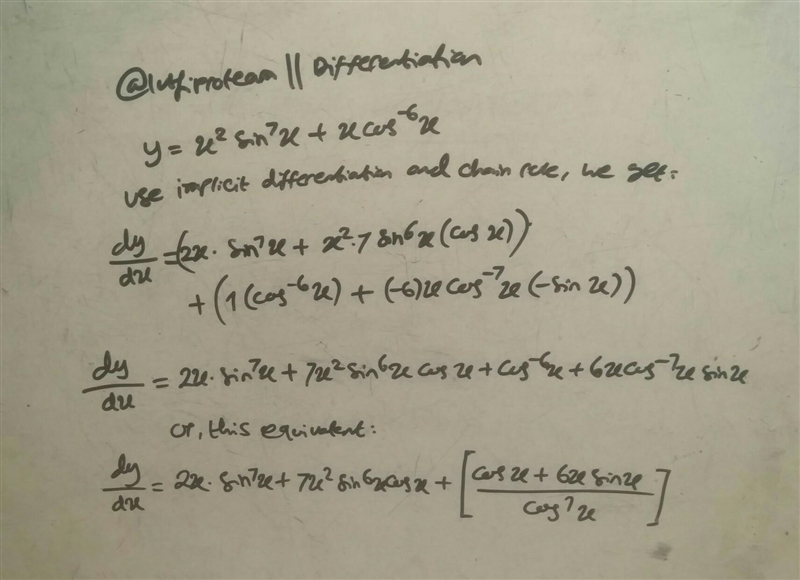 @lutfiproteam || Differentiation
y = x² sin⁷x + x cos⁻⁶x
use implicit differentiation and chain rule, we get:
dy/dx = (2x · sin⁷x + x² · 7 sin⁶x (cos x))
+ (1 (cos⁻⁶x) + (-6)x cos⁻⁷x (-sin x))
dy/dx = 2x · sin⁷x + 7x² sin⁶x cos x + cos⁻⁶x + 6x cos⁻⁷x sin x
or, this equivalent:
dy/dx = 2x · sin⁷x + 7x² sin⁶x cos x + [(cos x + 6x sin x)/(cos⁷x)]